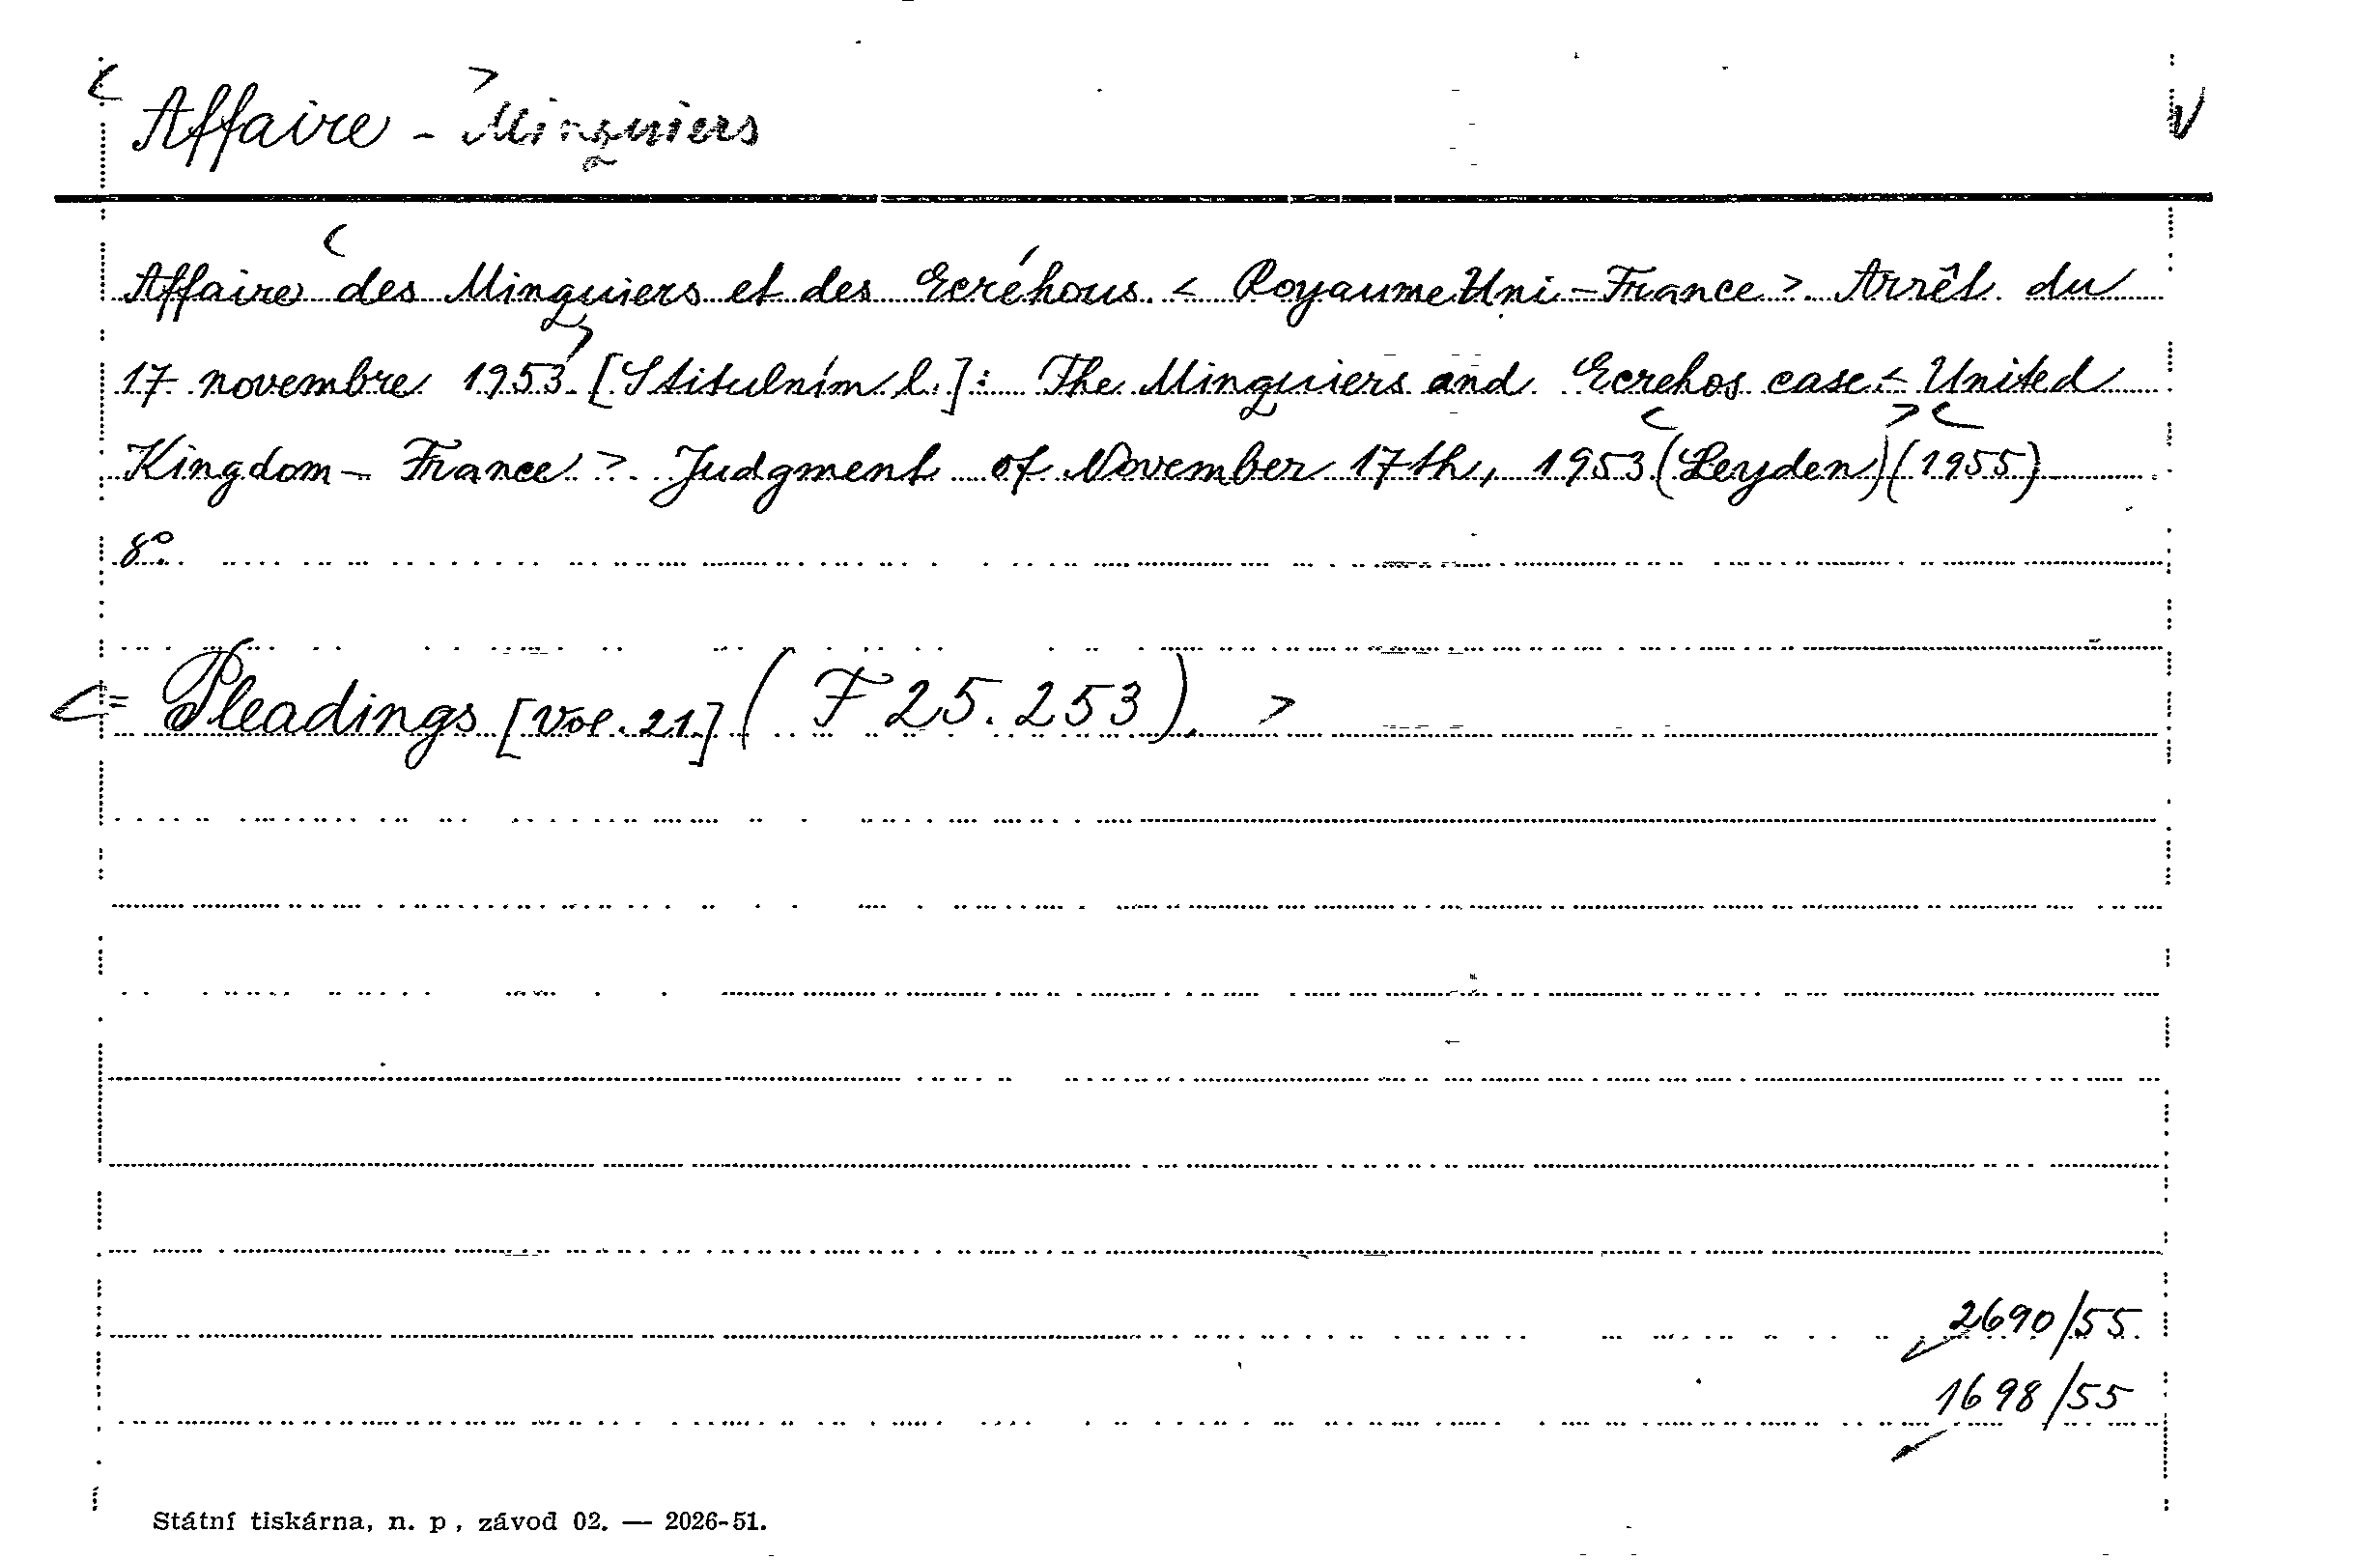 < Affaire - Minguiers > V
Affaire < des Minguiers et des Ecréhous < Royaume Uni - France >. Arrêt du
17 novembre 1953 > [S titulním l.]: The Minguiers and Ecrehos case < United
Kingdom - France >. Judgment of November 17th, 1953 < (Leyden) > < (1955)
8°.
< = Pleadings [Vol. 21] ( F 25.253 ). >
2690/55.
1698/55
Státní tiskárna, n. p., závod 02. — 2026-51.